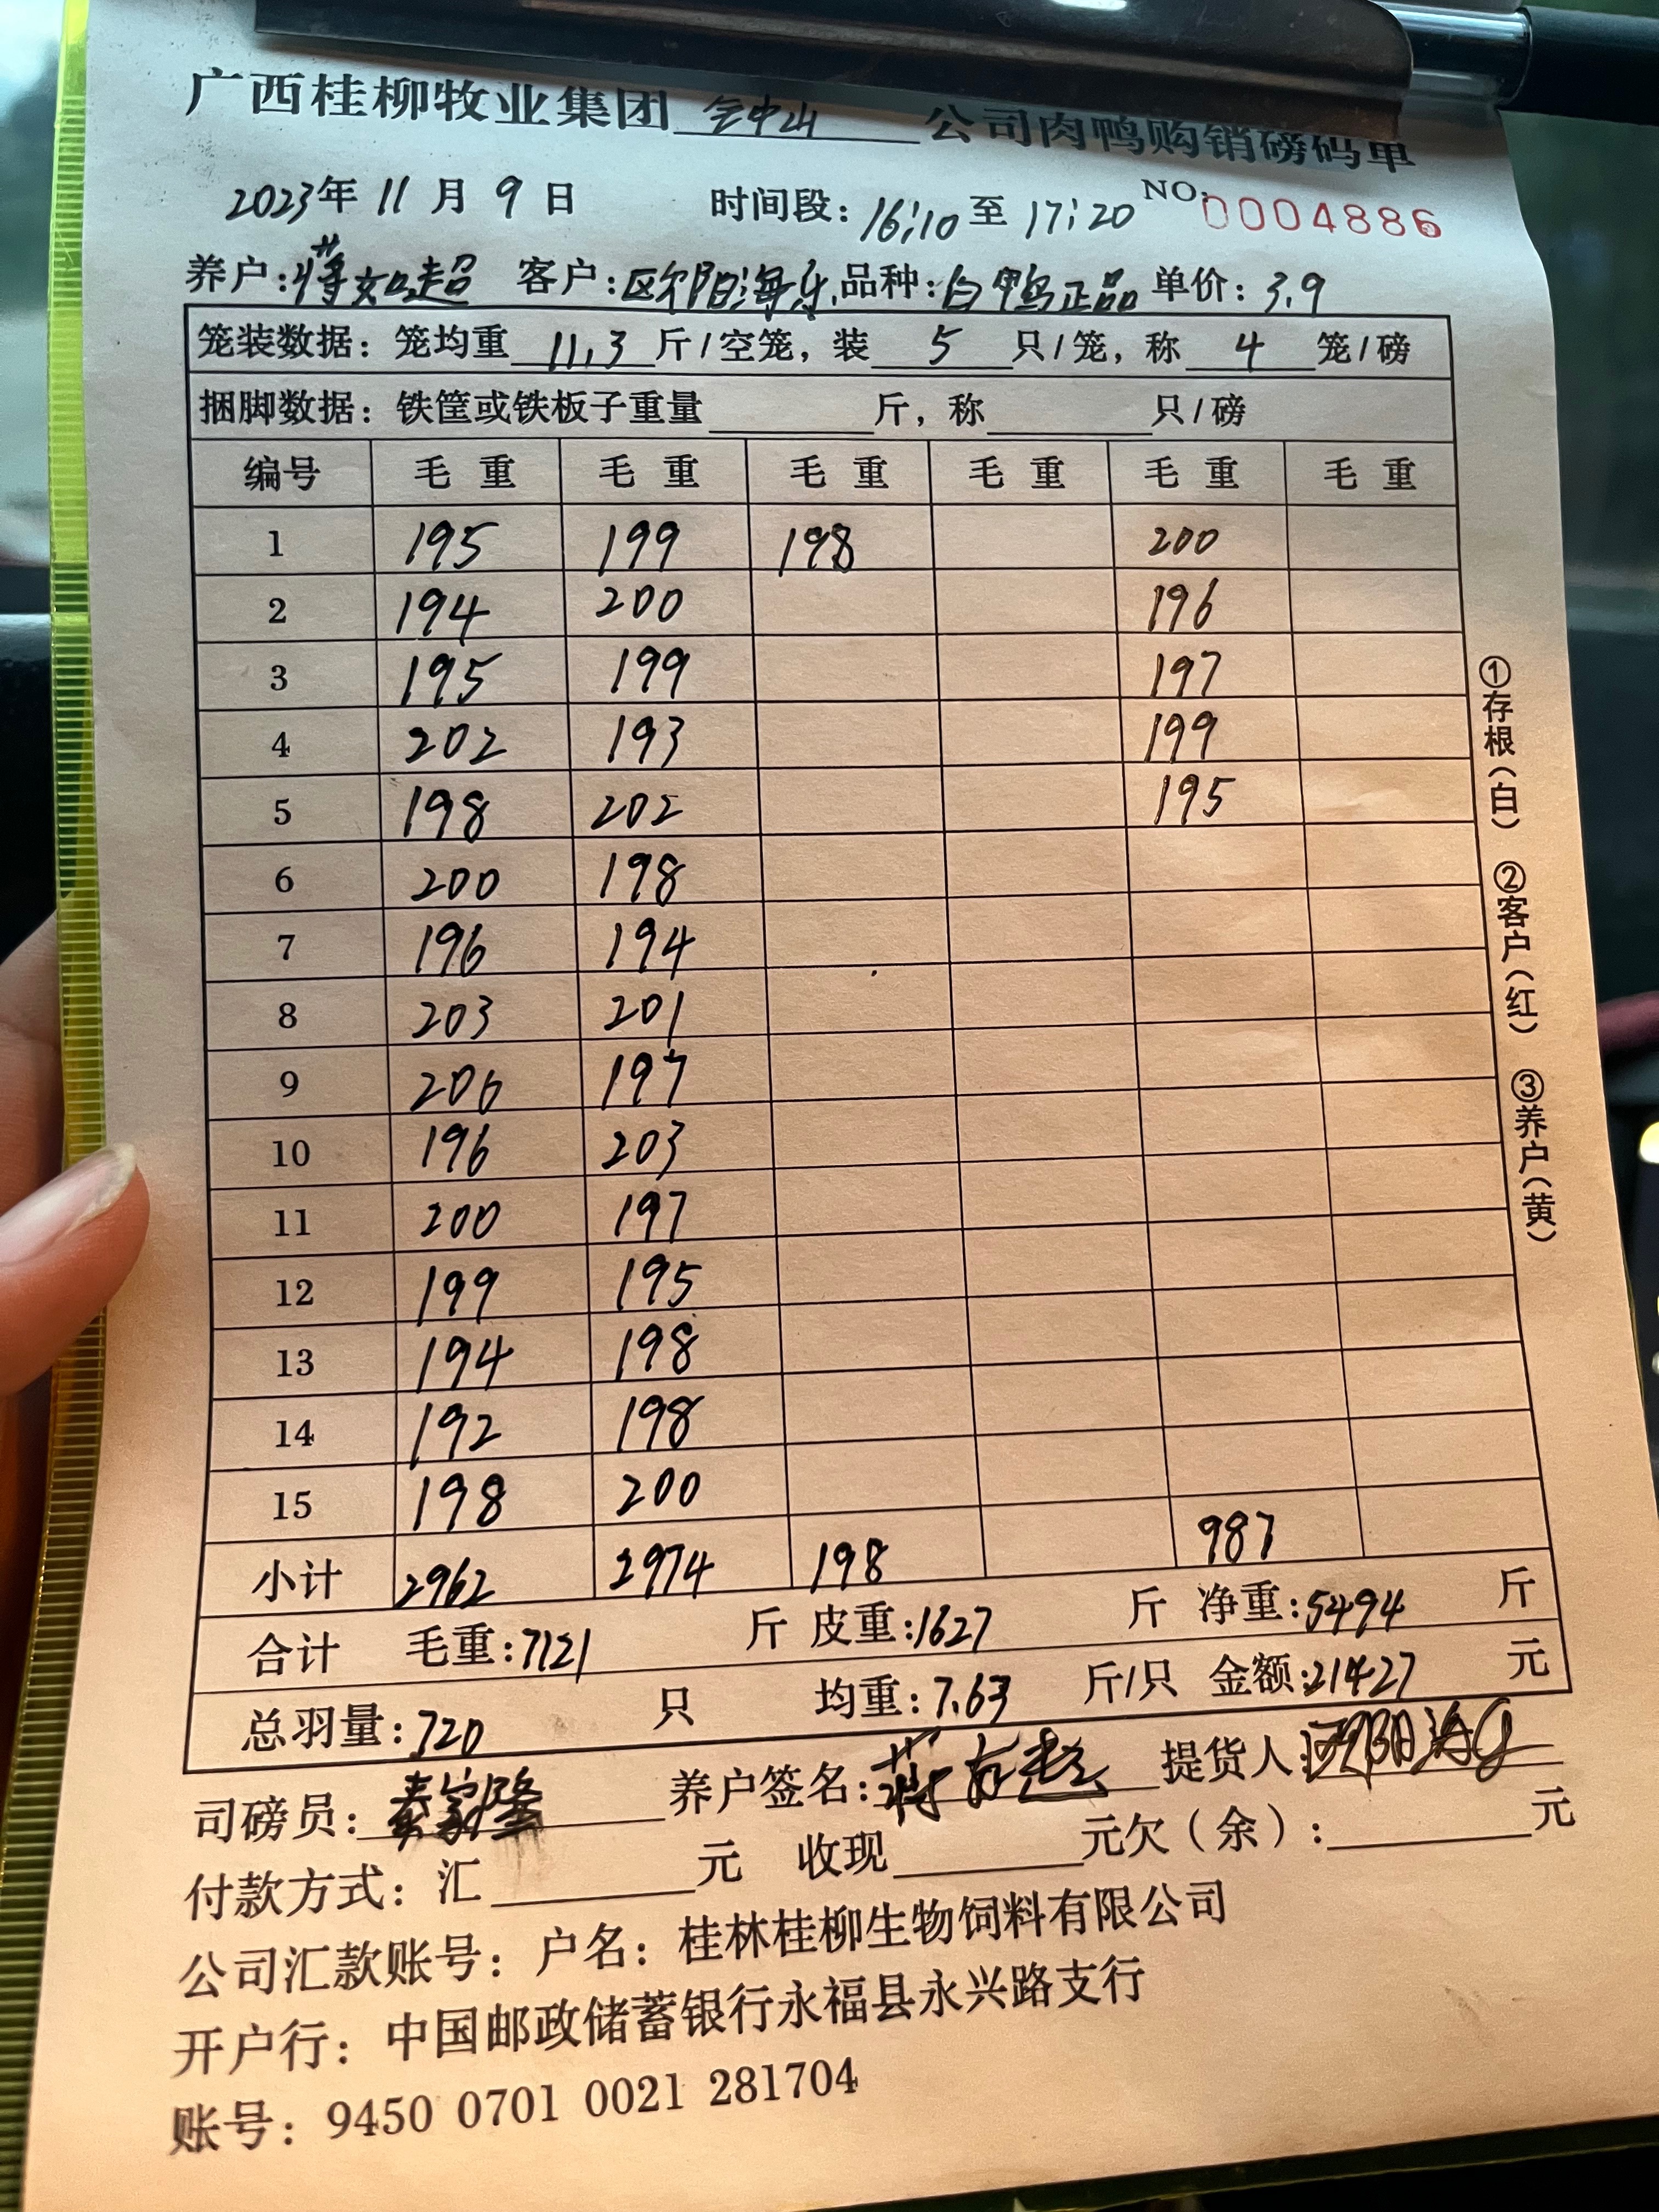 广西桂柳牧业集团 公司肉鸭购销磅码单
2023年 11 月 9 日 时间段: 16:10 至 17:20 NO:0004886
养户: 蒋如超 客户: 欧阳海乐 品种: 白鸭正品 单价: 3.9
笼装数据: 笼均重 11.3 斤/空笼, 装 5 只/笼, 称 4 笼/磅
捆脚数据: 铁筐或铁板子重量 斤, 称 只/磅
编号 毛重 毛重 毛重 毛重 毛重 毛重
1 195 199 198 200
2 194 200 196
3 195 199 197
4 202 193 199
5 198 202 195
6 200 198
7 196 194
8 203 201
9 206 197
10 196 203
11 200 197
12 199 195
13 194 198
14 192 198
15 198 200
小计 2962 2974 198 987
合计 毛重:7121 斤 皮重:1627 斤 净重:5494 斤
总羽量:720 只 均重:7.63 斤/只 金额:21427 元
司磅员: 秦家隆 养户签名: 提货人:
付款方式: 汇 元 收现 元欠(余): 元
公司汇款账号: 户名: 桂林桂柳生物饲料有限公司
开户行: 中国邮政储蓄银行永福县永兴路支行
账号: 9450 0701 0021 281704
①存根(白) ②客户(红) ③养户(黄)